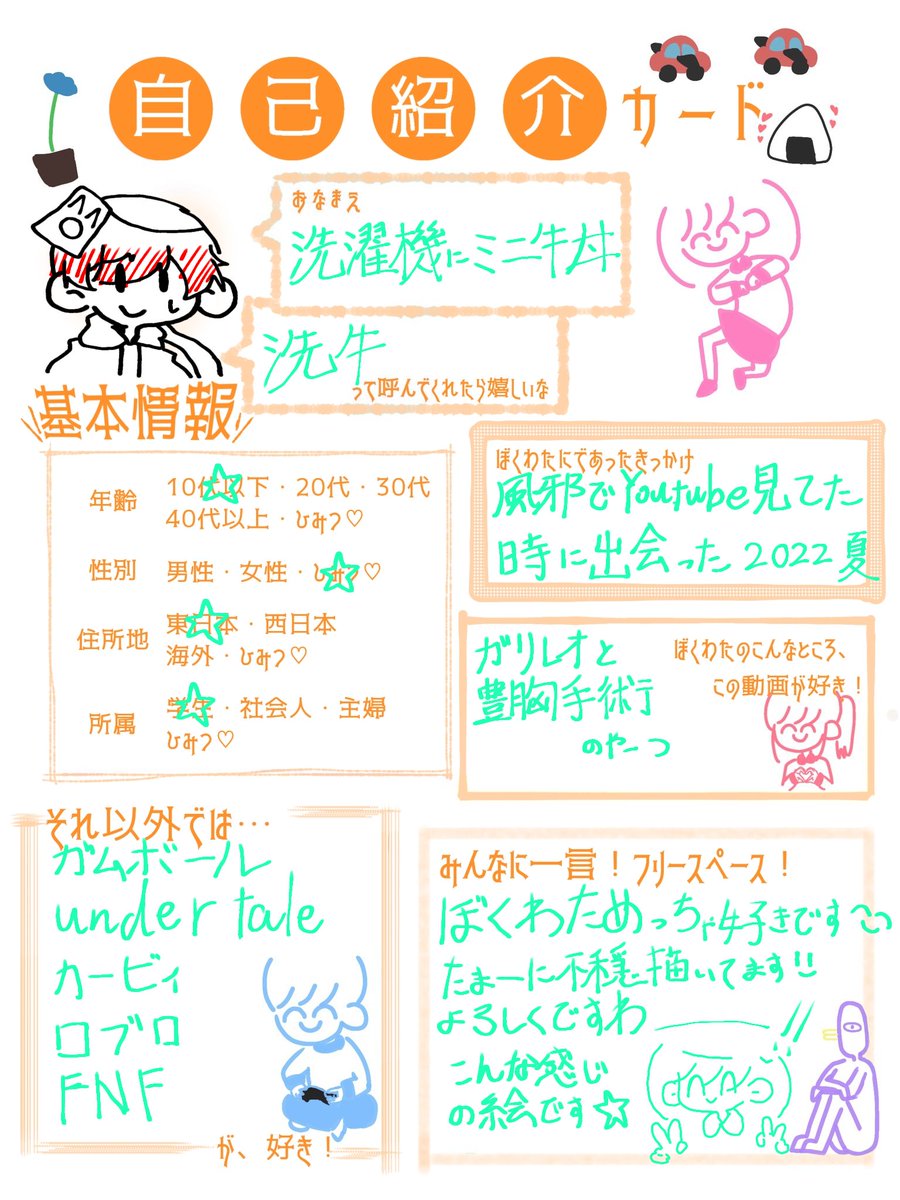 自己紹介カード
おなまえ
洗濯機にミニ牛丼
洗牛
って呼んでくれたら嬉しいな
基本情報
年齢 10代以下・20代・30代
40代以上・ひみつ♡
性別 男性・女性・ひみつ♡
住所地 東日本・西日本
海外・ひみつ♡
所属 学生・社会人・主婦
ひみつ♡
ぼくわたにであったきっかけ
風邪でYoutube見てた
時に出会った2022夏
ぼくわたのこんなところ、
この動画が好き!
ガリレオと
豊胸手術
のやーつ
それ以外では…
ガムボール
undertale
カービィ
ロブロ
FNF
が、好き!
みんなに一言!フリースペース!
ぼくわためっちゃ好きです〜い
たまーに不穏描いてます!!
よろしくですわ
こんな感じ
の絵です☆